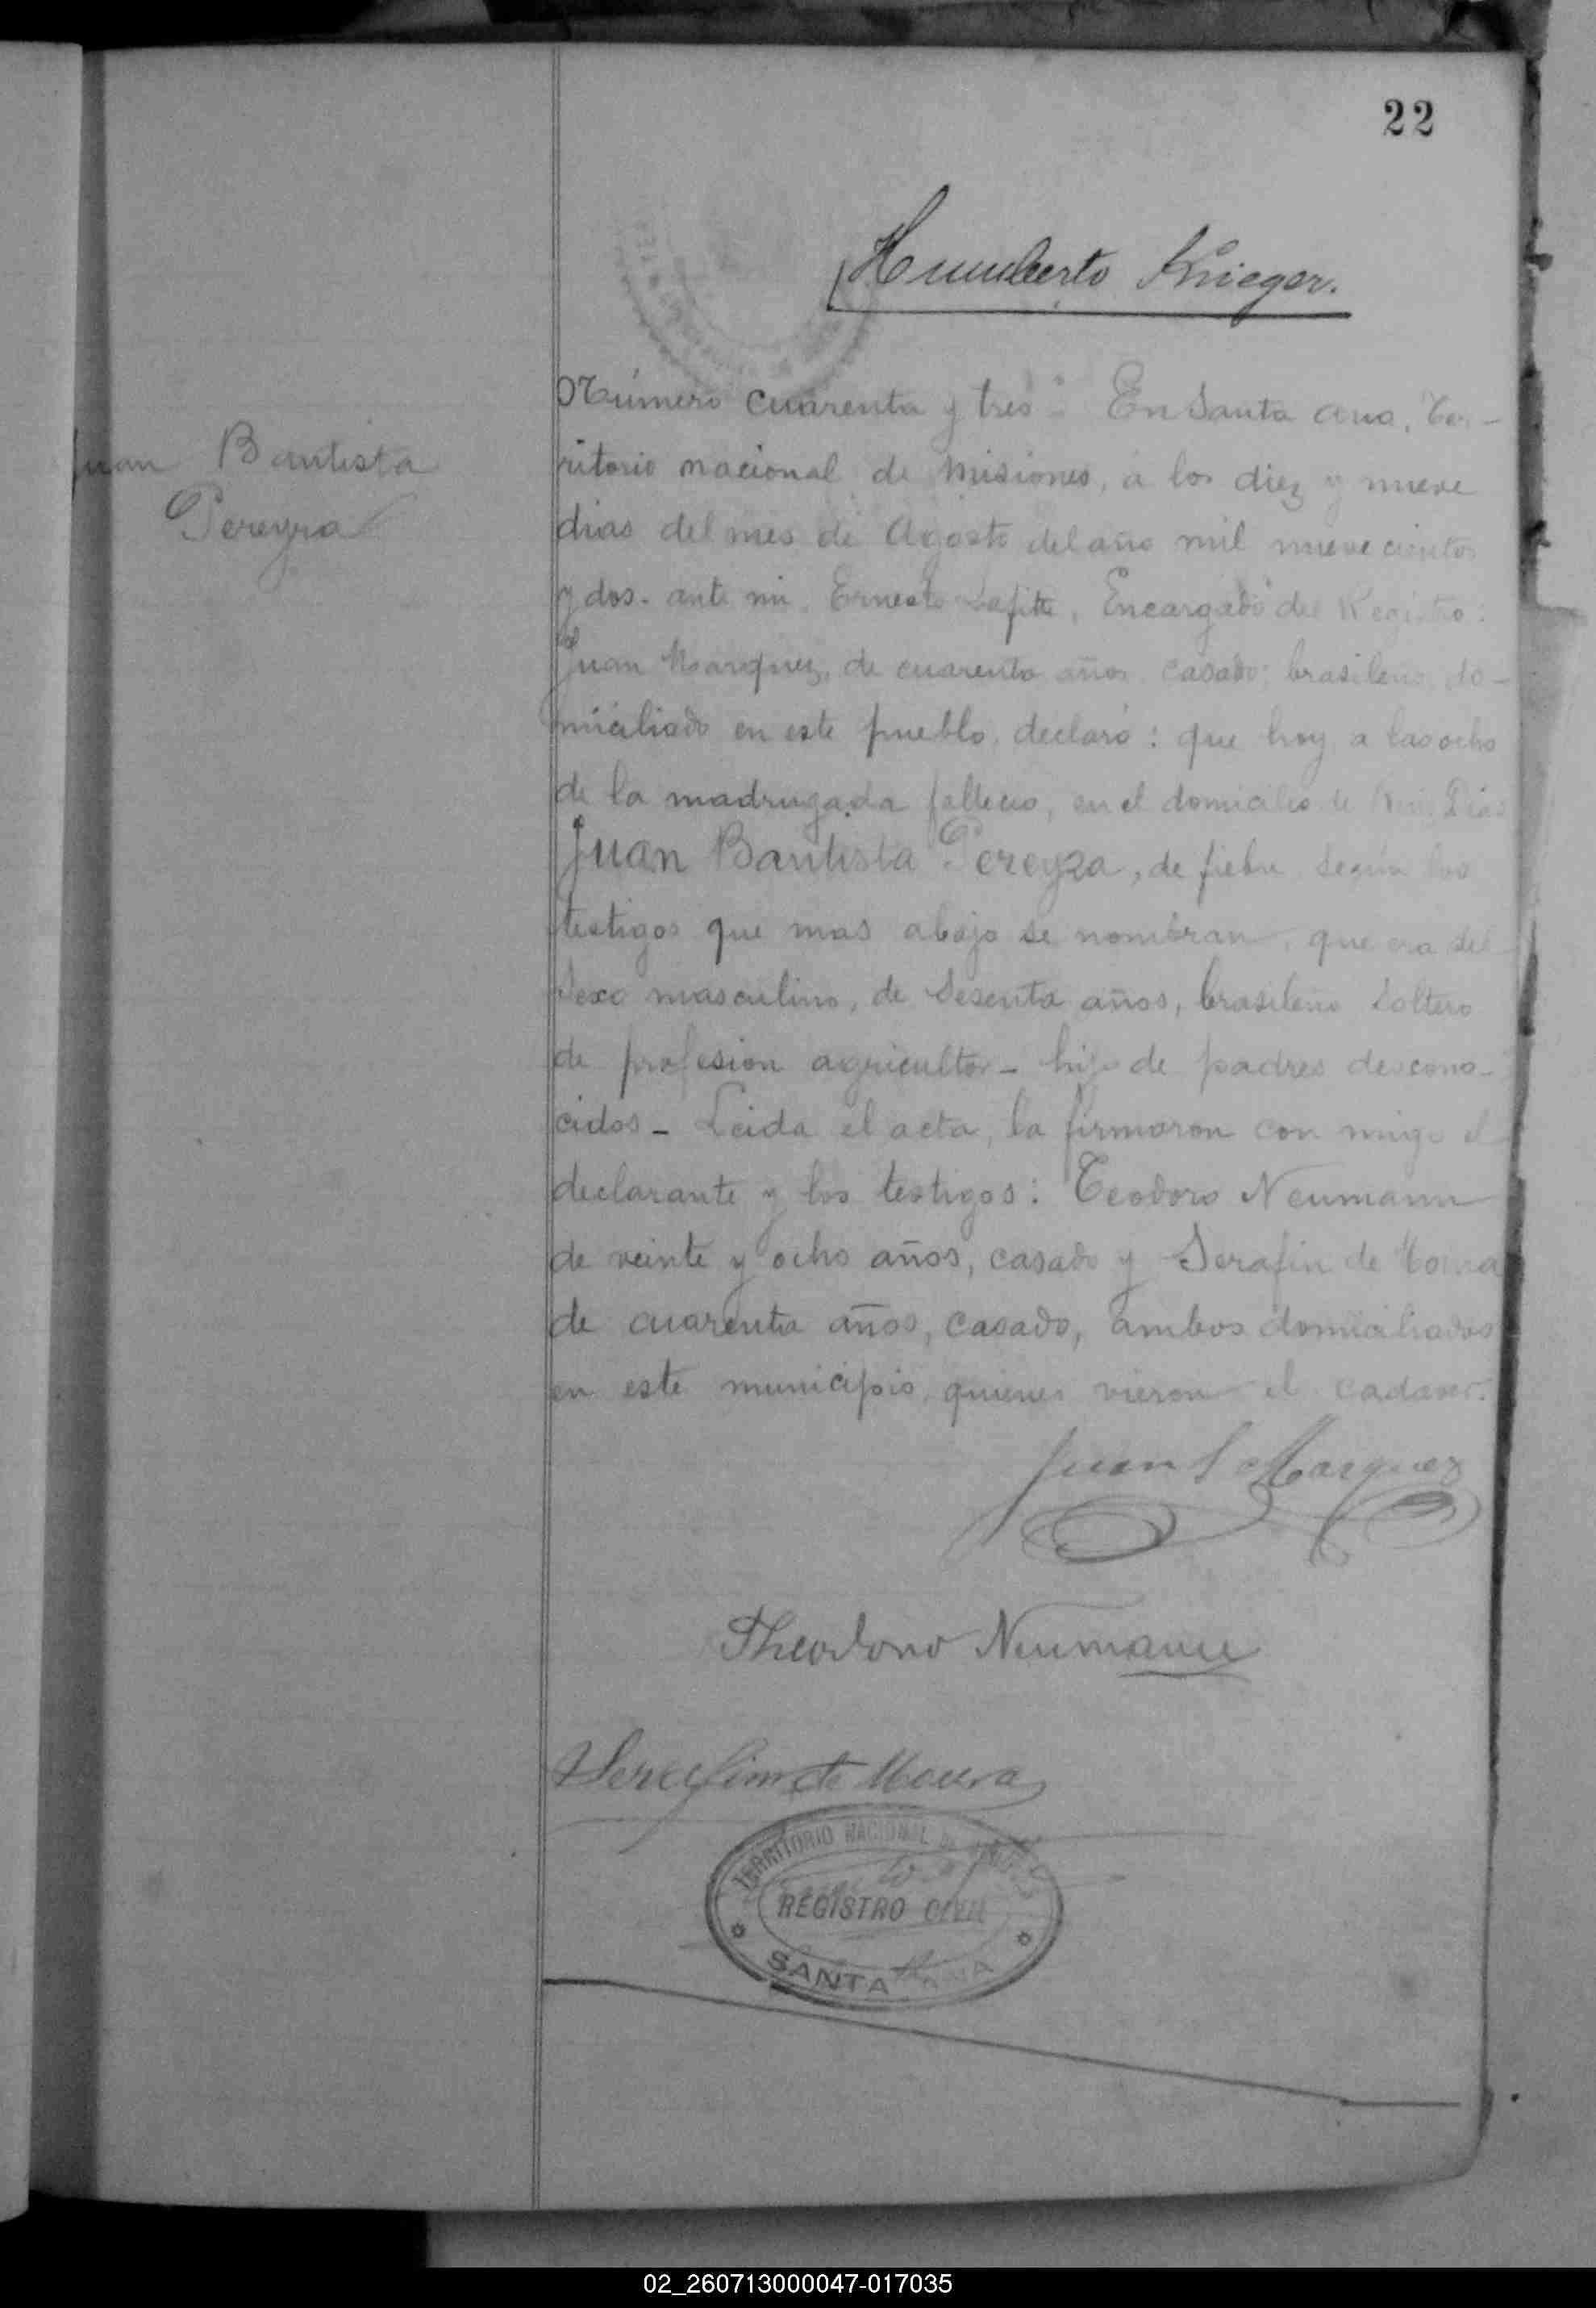 22
Humberto Krieger.
Juan Bautista
Pereyra
Número cuarenta y tres - En Santa Ana, Ter-
ritorio nacional de Misiones, á los diez y nueve
dias del mes de Agosto del año mil nuevecientos
y dos. ante mi, Ernesto Lafitte, Encargado del Registro:
Juan Marquez, de cuarenta años, casado, brasileno, do-
miciliado en este pueblo, declaró: que hoy, a las ocho
de la madrugada fallecio, en el domicilio de Dias
Juan Bautista Pereyra, de fiebre segun los
testigos que mas abajo se nombran, que era del
sexo masculino, de sesenta años, brasileño soltero
de profesion agricultor - hijo de padres descono-
cidos - Leida el acta, la firmaron con migo el
declarante y los testigos: Teodoro Neumann
de veinte y ocho años, casado y Serafin de Moura
de cuarenta años, casado, ambos domiciliados
en este municipio, quienes vieron el cadaver.
Juan Marquez
Theodoro Neumann
Serafim de Moura
TERRITORIO NACIONAL DE MISIONES
REGISTRO CIVIL
SANTA ANA
02_260713000047-017035